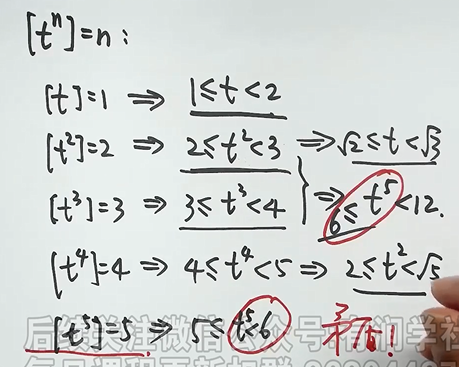 [tⁿ]=n:
[t]=1 ⇒ 1≤t<2
[t²]=2 ⇒ 2≤t²<3 ⇒ √2≤t<√3
[t³]=3 ⇒ 3≤t³<4 } ⇒ 6≤t⁵<12.
[t⁴]=4 ⇒ 4≤t⁴<5 ⇒ 2≤t²<√5
[t⁵]=5 ⇒ 5≤t⁵<6 矛盾!